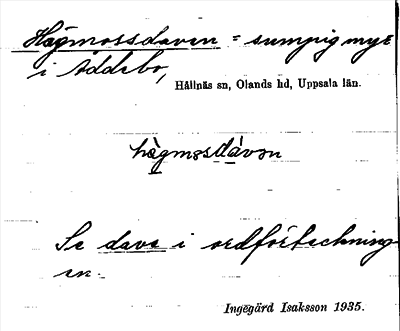 Hägmossdaven = sumpig myr
i Addebo,
Hållnäs sn, Olands hd, Uppsala län.
hägmosdávən
Se dave i ordförteckning
en.
Ingegärd Isaksson 1935.